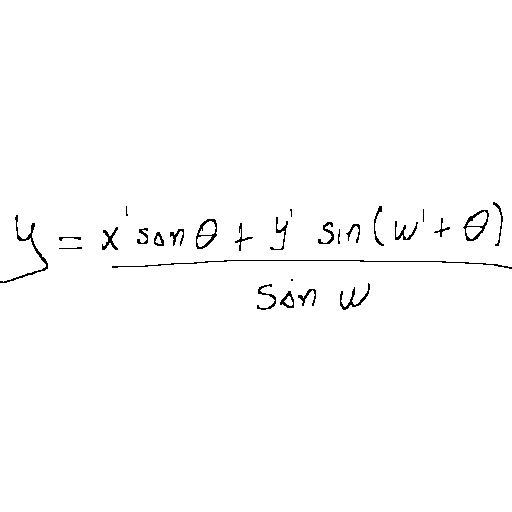 y = \frac{x' \sin \theta + y' \sin(w' + \theta)}{\sin w}